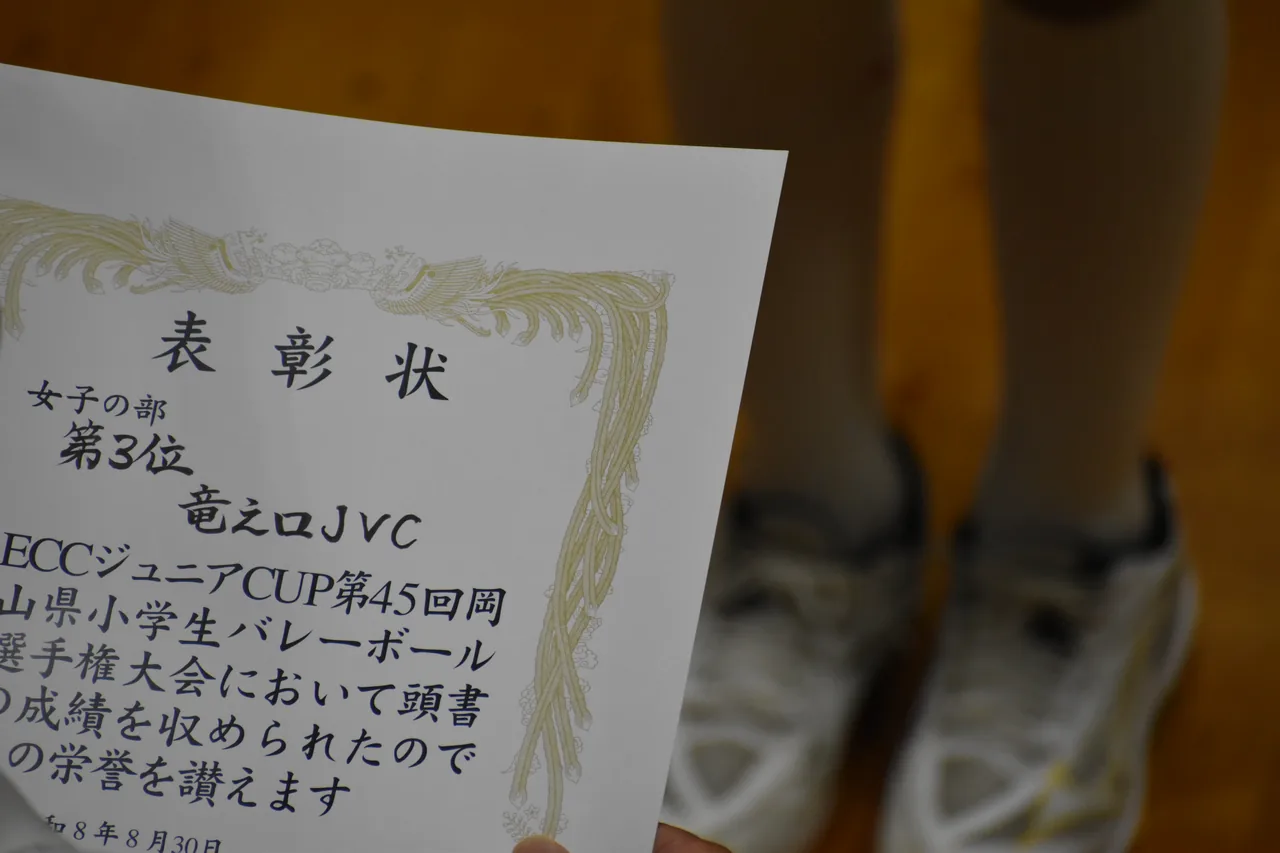 表彰状
女子の部
第3位
竜之口JVC
ECCジュニアCUP第45回岡
山県小学生バレーボール
選手権大会において頭書
の成績を収められたので
の栄誉を讃えます
和8年8月30日